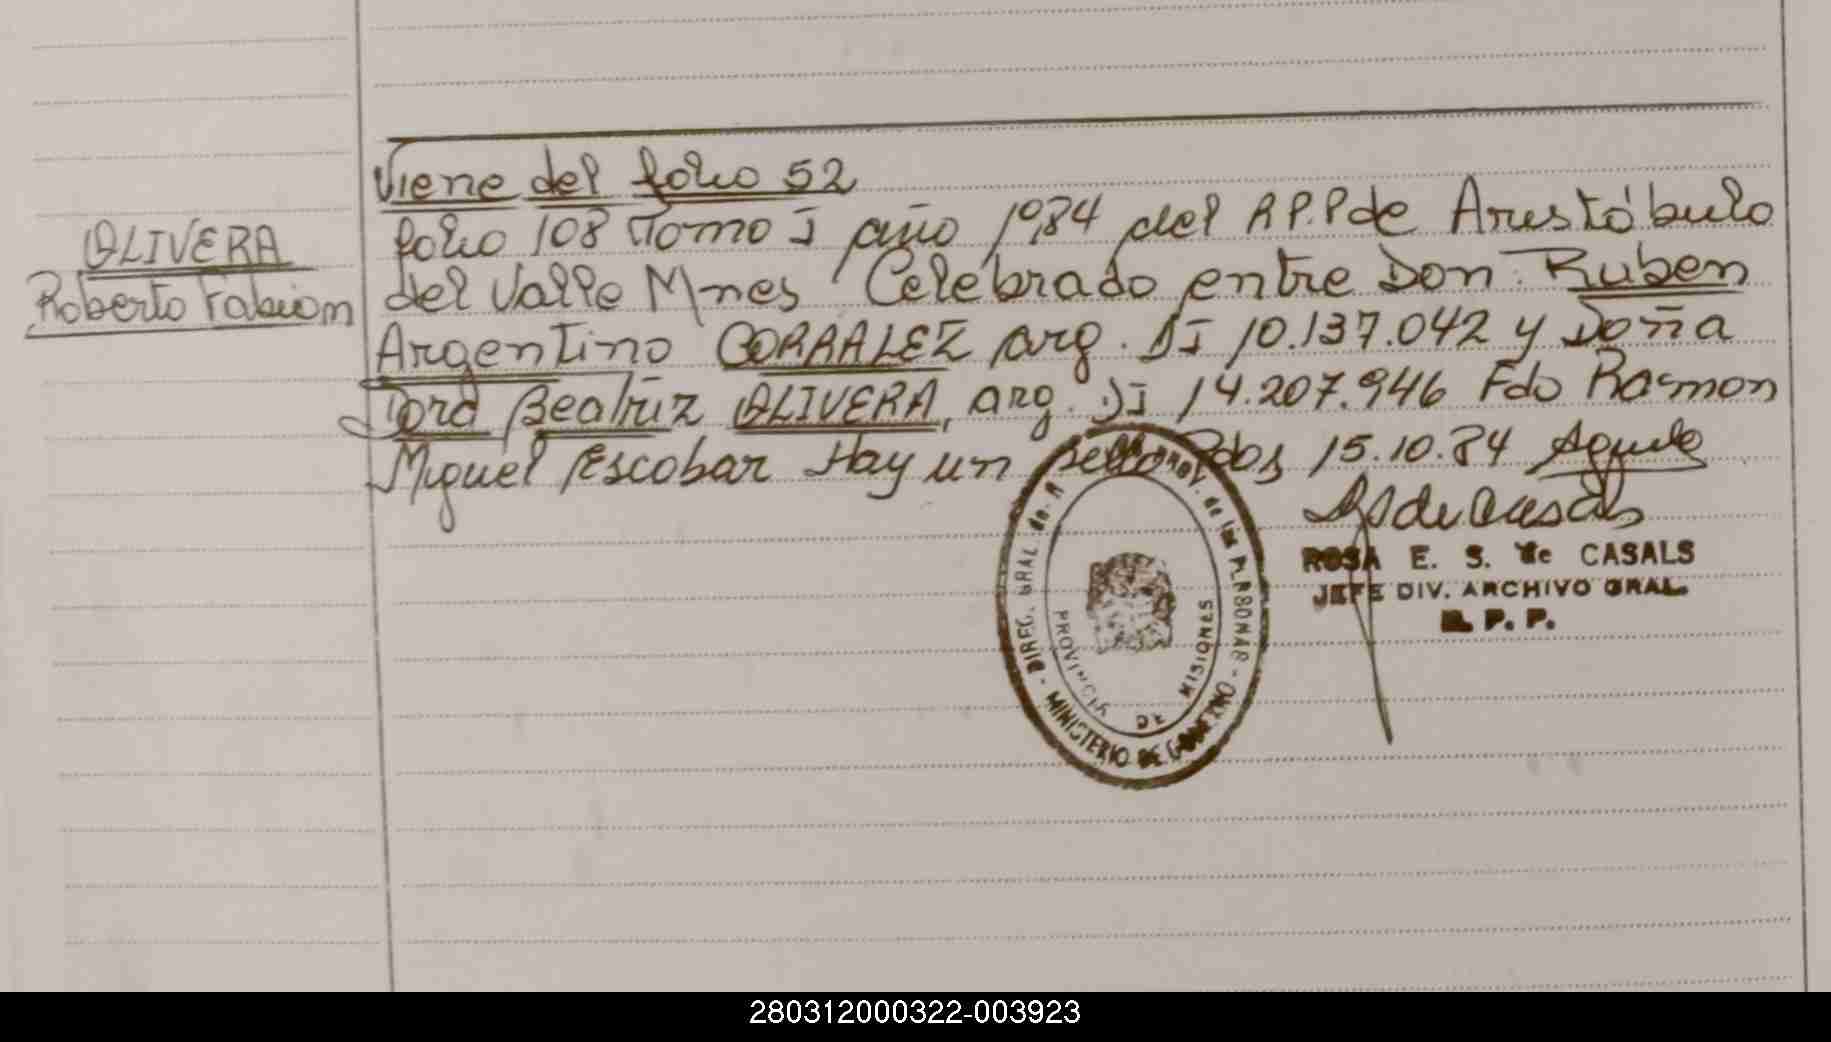 Viene del folio 52
OLIVERA
Roberto Fabian
folio 108 Tomo I año 1984 del R.P.P de Aristóbulo
del Valle Mnes Celebrado entre Don: Ruben
Argentino CORRALEZ arg. DI 10.137.042 y Doña
Dora Beatriz OLIVERA, arg. DI 14.207.946 Fdo Ramon
Miguel Escobar Hay un Sello Pdas 15.10.84
ROSA E. S. de CASALS
JEFE DIV. ARCHIVO GRAL.
R. P. P.
DIREC. GRAL. de R PROV. de las PERSONAS
- MINISTERIO DE GOBIERNO -
PROVINCIA DE MISIONES
280312000322-003923